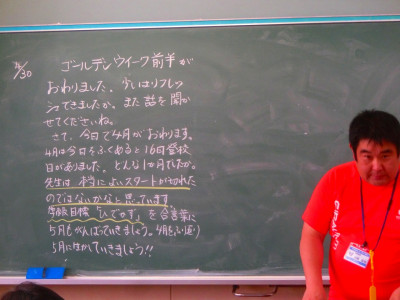 4/30 ゴールデンウィーク前半が
おわりました。少しはリフレッ
シュできましたか。また話を聞か
せてくださいね。
さて、今日で4月がおわります。
4月は今日をふくめると16日登校
日がありました。どんな1か月でしたか。
先生は、本当によいスタートが切れた
のではないかなと思っています。
学級目標「ひでやす」を合言葉に
5月もがんばっていきましょう。4月をふり返り
5月に生かしていきましょう!!